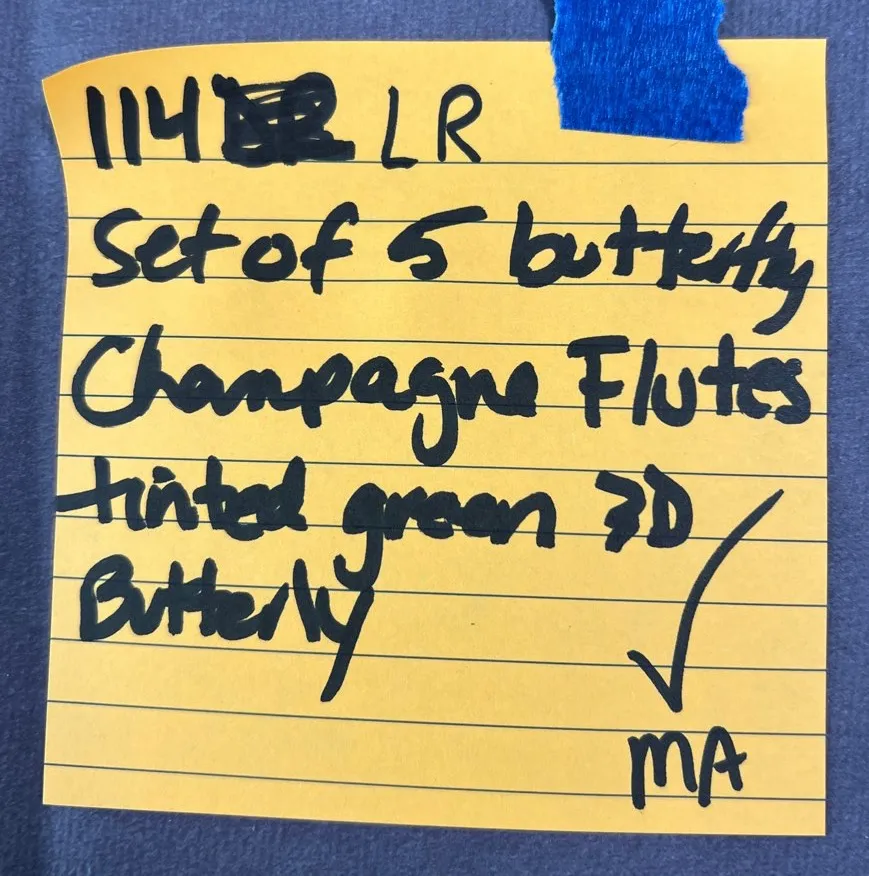 114 LR
Set of 5 butterfly
Champagne Flutes
tinted green 3D
Butterly
MA